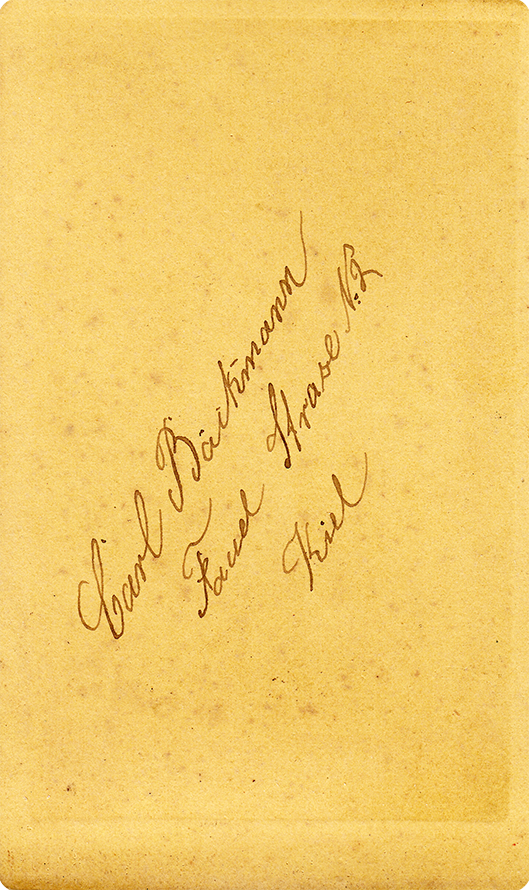 Carl Bäckmann
Faul Strase N: 2
Kiel